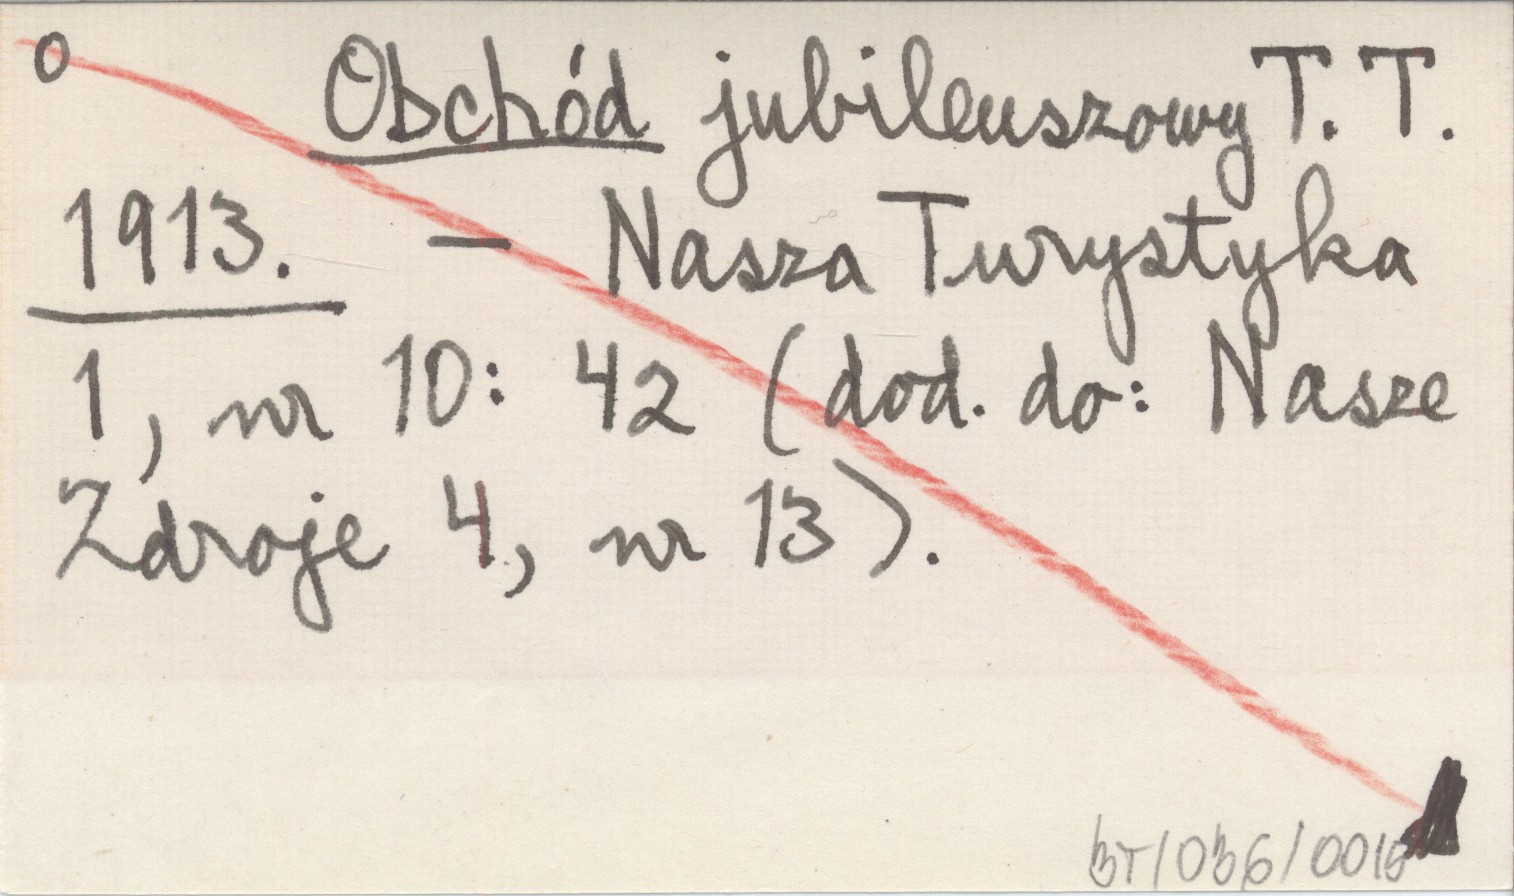 o Obchód jubileuszowy T. T.
1913. — Nasza Turystyka
1, nr 10: 42 (dod. do: Nasze
Zdroje 4, nr 13).